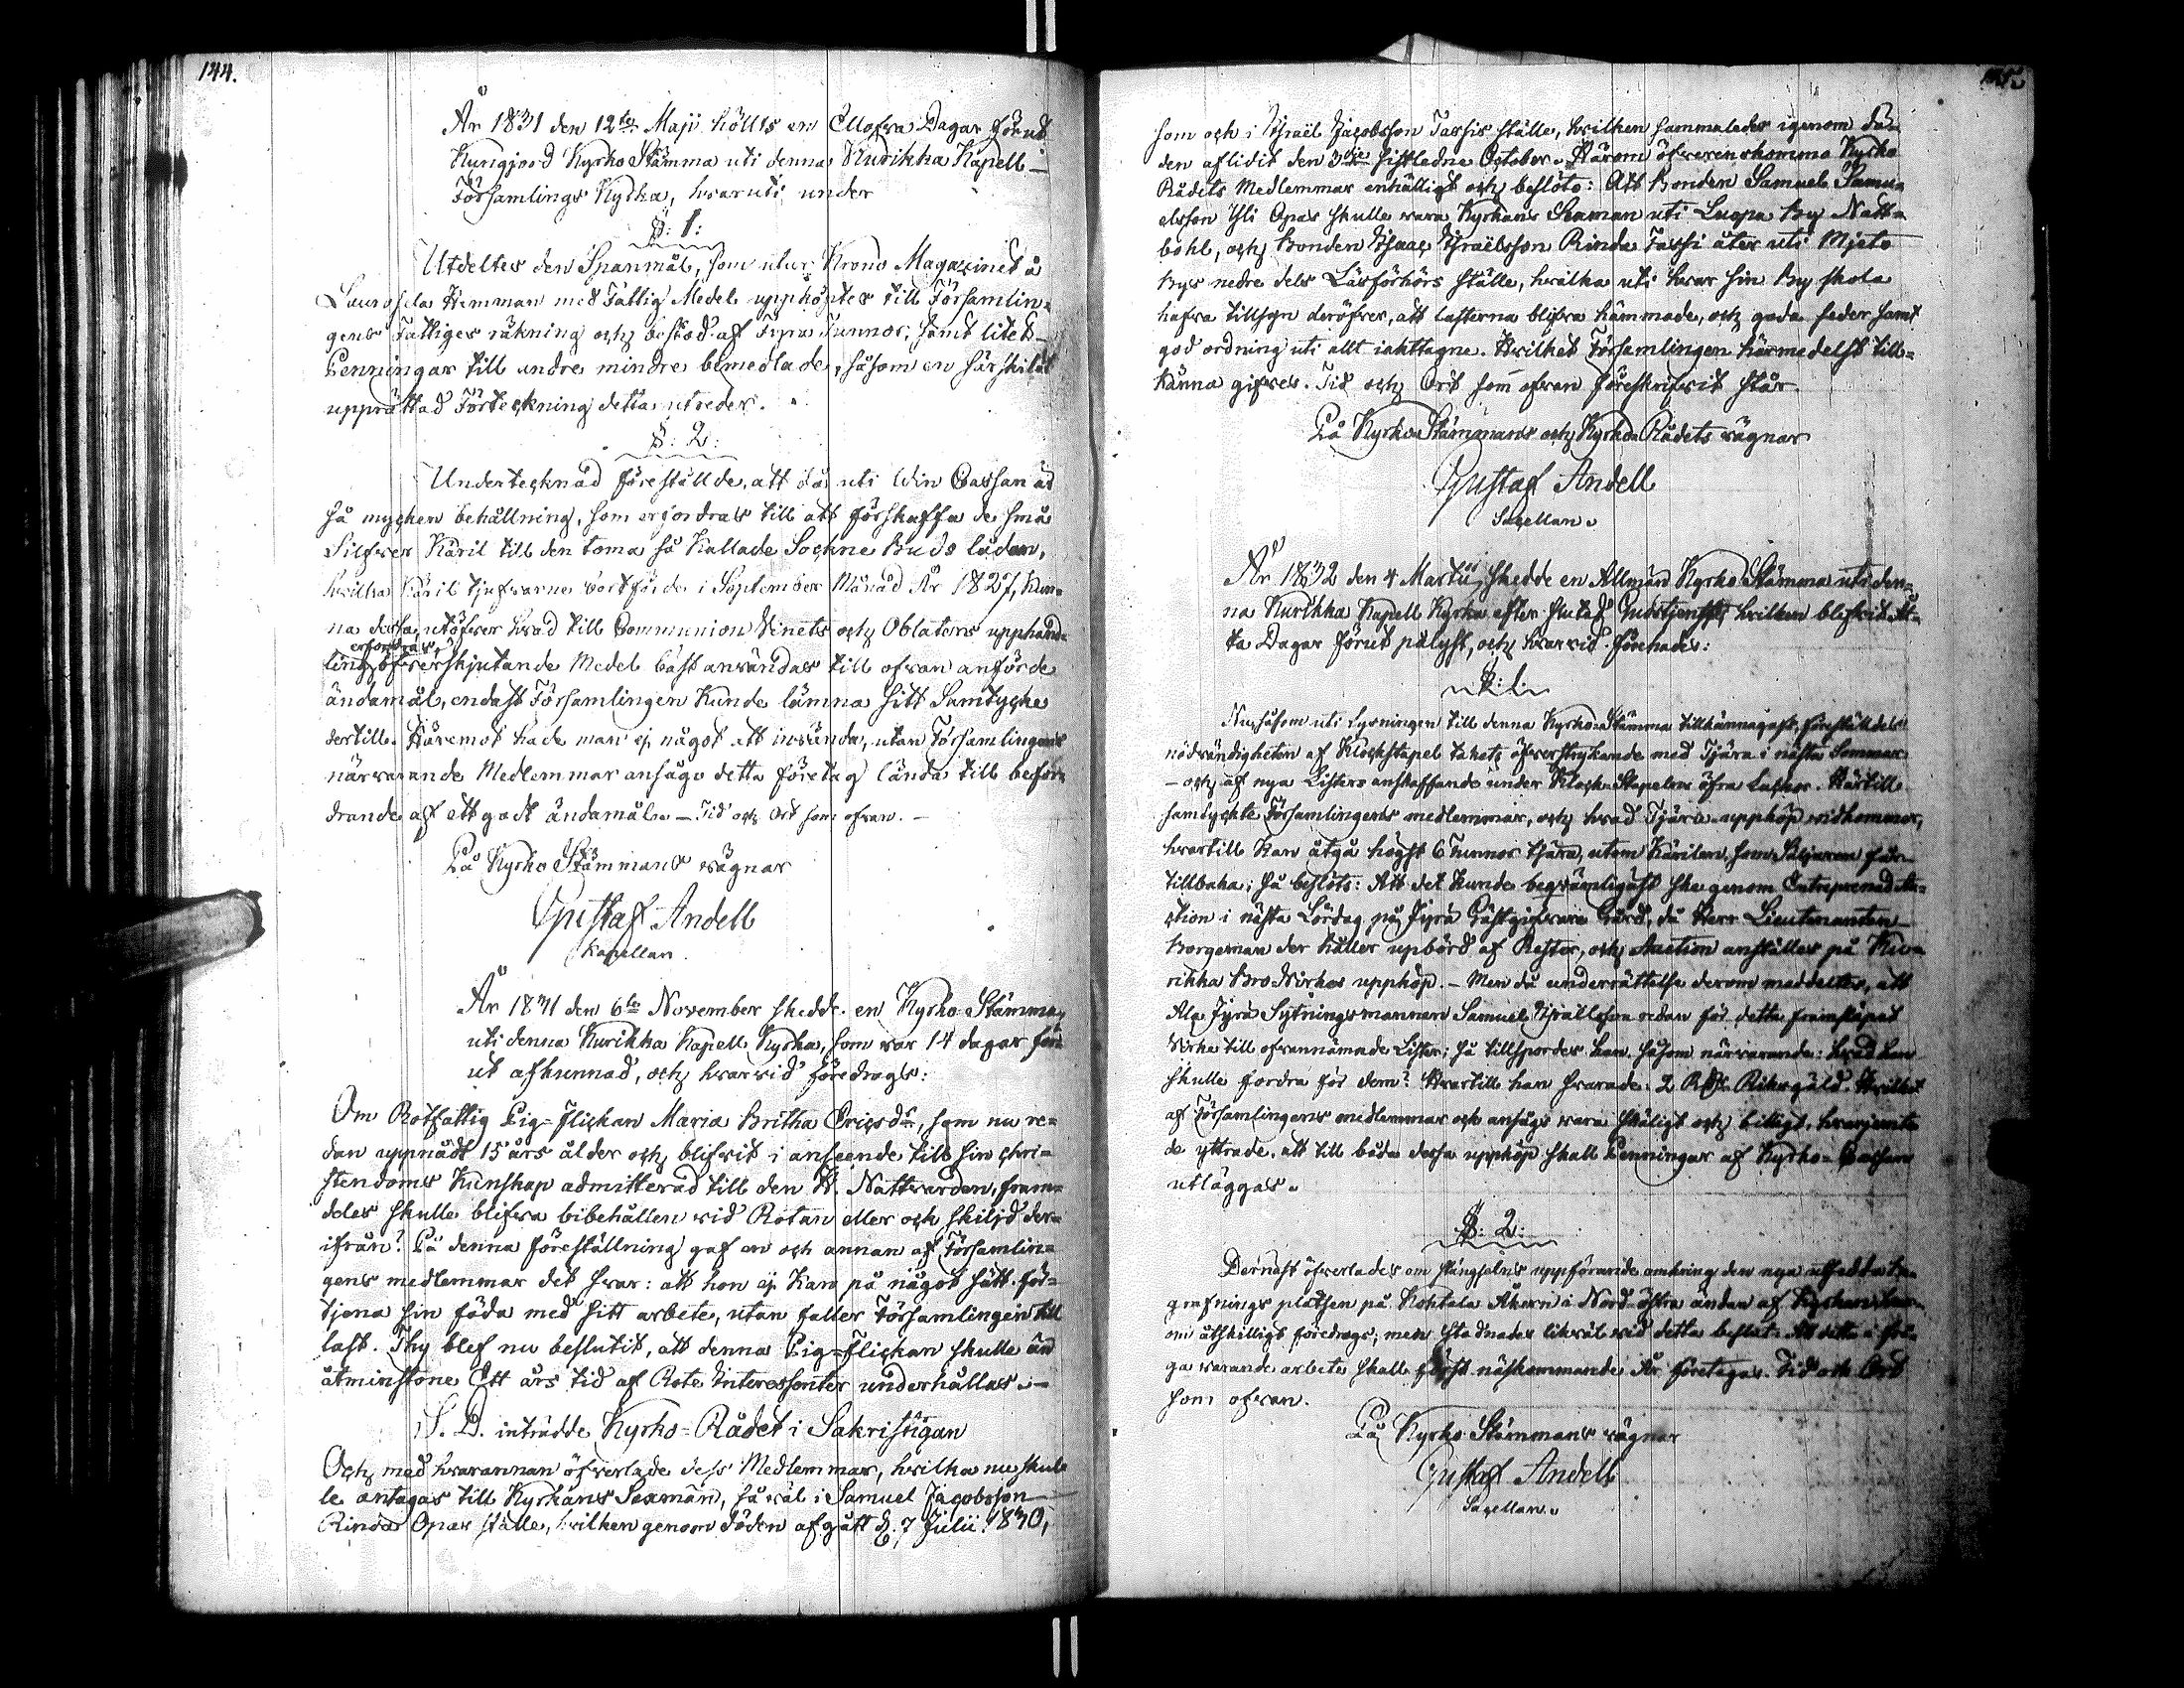 144.
År 1831 den 12te Maji hölts en Ellofva Dagar förut
Kungjord Kyrko Stämma uti denna Kurikka Kapell-
Församlings Kyrka, hvaruti under
§: 1:
Utdeltes den Spanmål, som utur Krono Magazinet å
Laurosela Hemman med Fattig Medel upphöptes till Församlin-
gens Fattiges räkning och bestod af Fyra Tunnor; samt litet
Penningar till andre mindre bemedlade, såsom en särskildt
upprättad Förteckning detta utreder.
§: 2:
Undertecknad föreställde, att då uti Win Cassan är
så mycken behållning, som erfordras till att förskaffa de små
Silfver Käril till den toma så kallade Sockne Buds lådan,
hvilka Käril tjufvarne bortförde i September Månad År 1827, kun-
na dessa, utöfver hvad till Communion Vinets och Oblaters upphand-
erfordras,
ling öfverskjutande Medel bäst användas till ofvan anförde
ändamål, endast Församlingen kunde lämna sitt Samtycke
dertill. Häremot hade man ej något att invända, utan Församlingens
närvarande Medlemmar ansågo detta företag lända till befor-
drande af ett godt ändamål. - Tid och Ort som ofvan. -
På Kyrko Stämmans vägnar
Gustaf Andell
Kapellan.
År 1831 den 6te November skedde en Kyrko Stämma
uti denna Kurikka Kapell Kyrka, som var 14 dagar för-
ut afkunnad, och hvarvid föredrogs:
Om Rotfattig Pig-Flickan Maria Britha Ericsdr, som nu re-
dan uppnådt 15 års ålder och blifvit i anseende till sin Chri-
stendoms Kunskap admitterad till den H. Nattvarden, fram-
deles skulle blifva bibehållen vid Rotan eller och skiljd der-
ifrån? På denna föreställning gaf en och annan af Församlin-
gens medlemmar det svar: att hon ej kan på något sätt för-
tjena sin föda med sitt arbete, utan faller Församlingen till
last. Thy blef nu beslutit, att denna Pig-Flickan skulle än
åtminstone Ett års tid af Rote Interessenter underhållas. -
S. D. inträdde Kyrko-Rådet i Sakristigan
Och med hvarannan öfverlade dess Medlemmar, hvilka nu skul-
le antagas till Kyrkans Sexmän, så väl i Samuel Jacobsson
Rinda Opas ställe, hvilken genom döden afgått d. 7 Julii 1830,
som och i Israël Jacobsson Tassis ställe, hvilken sammaledes igenom Dö-
den aflidit den 3dje sistledne October. Härom öfverenskommo Kyrko
Rådets Medlemmar enhälligt och beslöto: Att Bonden Samuel Samu-
elsson Yli Opas skulle vara Kyrkans Sexman uti Luopa By Natt-
bohl, och Bonden Isaac Israëlsson Rinda Tassi åter uti Mjeto
Bys nedre dels Läsförhörs ställe, hvilka uti hvar sin By skola
hafva tillsyn deröfver, att lasterna blifva hämmade, och goda seder samt
god ordning uti allt iakttagne. Hvilket Församlingen härmedelst till-
känna gifves. Tid och Ort som ofvan föreskrifvit står.
På Kyrko Stämmans och Kyrko Rådets vägnar
Gustaf Andell
Sacellan.
År 1832 den 4 Martii skedde en Allmän Kyrko Stämma uti den-
na Kurikka Kapell Kyrka efter slutad Gudstjenst, hvilken blifvit Åt-
ta Dagar förut pålyst, och hvarvid förehades:
§: 1:
Nu, såsom uti Lysningen till denna Kyrko Stämma tillkännagafs, föreställdes
nödvändigheten af Klockstapel takets öfverstrykande med Tjära i nästa Sommar
- och af nya Listers anskaffande under Klock-Stapelns öfra Luckor. Härtill
samtyckte Församlingens medlemmar, och hvad Tjäru upphöp vidkommer,
hvartill kan åtgå högst 6 Tunnor tjära, utom Kärilen, som Säljaren får
tillbaka; så beslöts: Att det kunde beqvämligast ske genom Entreprenad Au-
ction i nästa Lördag på Jyrä Gästgifvare Gård, då Herr Lieutenanten
Borgeman der håller upbörd af Rester, och Auction anställes på Ku-
rikka Bro Virkes upphöp. - Men då underrättelse derom meddeltes, att
Ala Jyrä Sytningsmannen Samuel Israëlsson redan för detta framsläpat
Virke till ofvannämnde Lister; så tillspordes han såsom närvarande: hvad han
skulle fordra för dem? Hvartill han svarade: 2 Rdr Riksgäld. Hvilket
af Församlingens medlemmar och ansågs vara skäligt och billigt, hvarjemte
de yttrade, att till båda dessa upphöp skall Penningar af Kyrko-Cassan
utläggas.
§: 2:
Dernäst öfverlades om stängselns uppförande omkring den nya utsedda be-
grafnings platsen på Kohtala Åkern i Nord-östra ändan af Kyrkan, hvar-
om åtskilligt föredrogs; men stadnades likväl vid detta beslut: Att detta i frå-
ga varande arbete skall först näskommande År företagas. Tid och Ort
som ofvan.
På Kyrko Stämmans vägnar
Gustaf Andell
Sacellan.